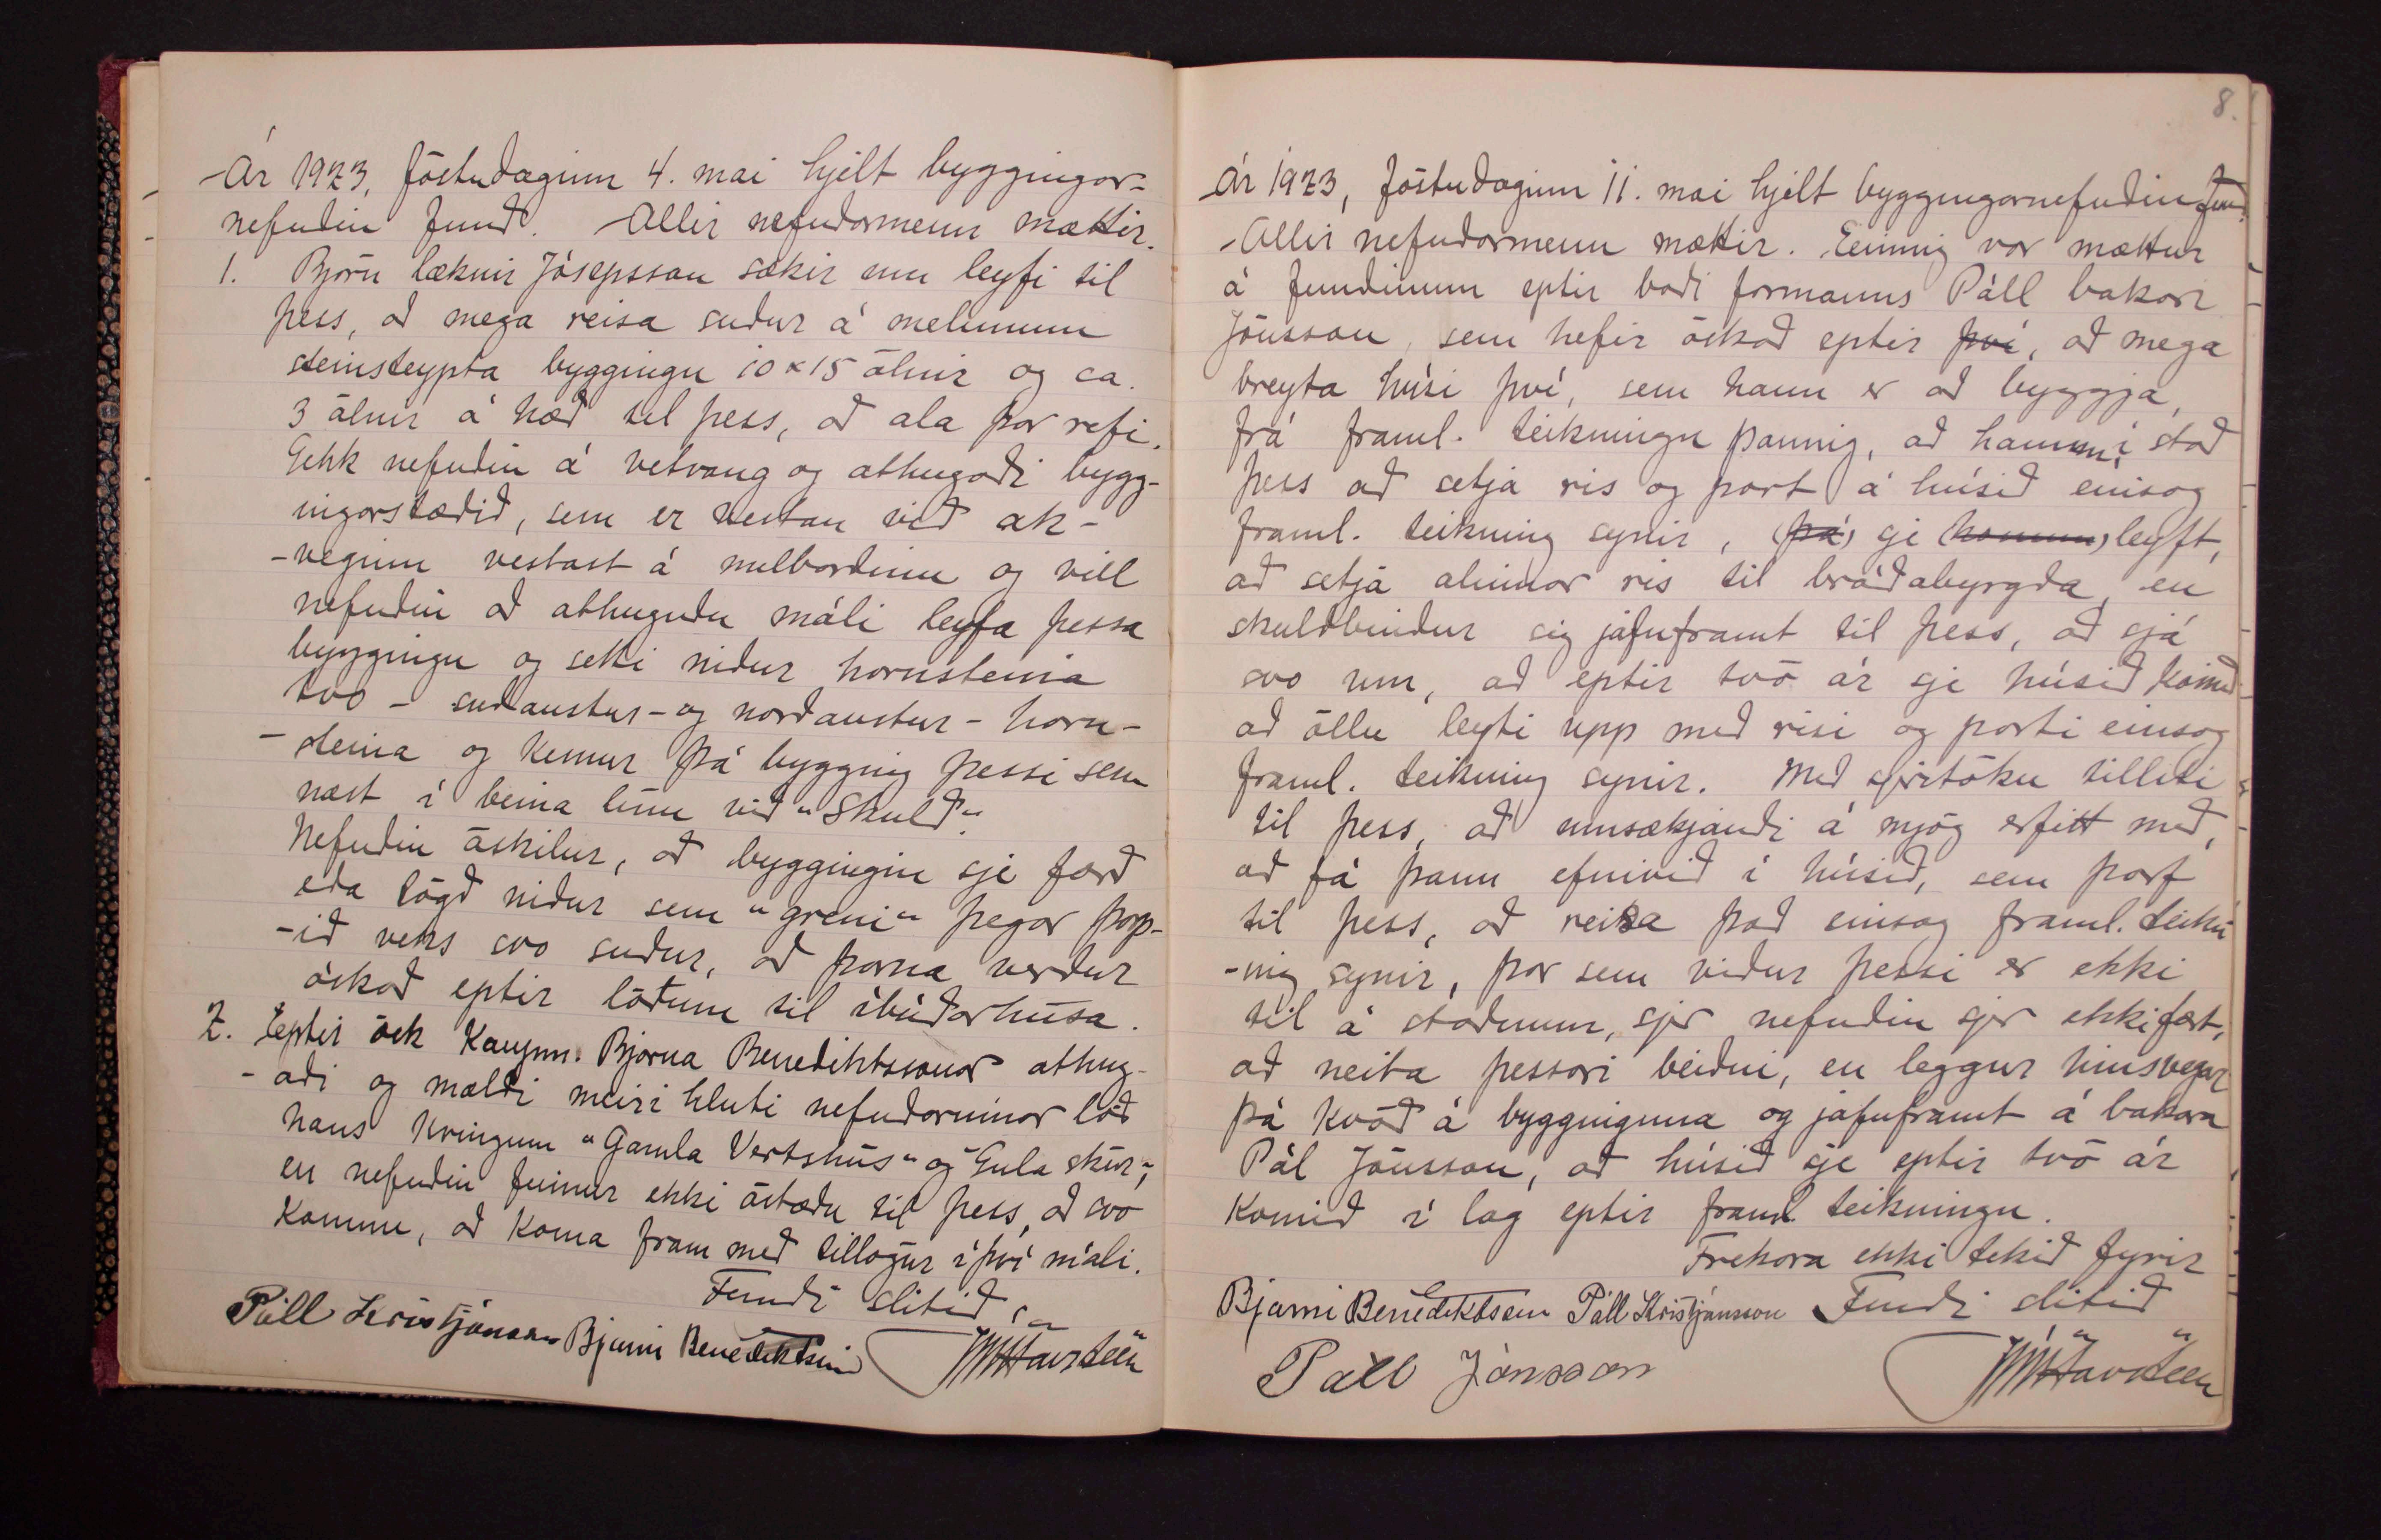 Ár 1923, föstudaginn 4. mai hjelt byggingar-
nefndin fund. Allir nefndarmenn mættir.
1. Björn læknir Jósepsson sækir um leyfi til
þess, að mega reisa suður á melunum
steinsteypta byggingu 10 x 15 álnir og ca.
3 álnir á hæð til þess, að ala þar refi.
Gekk nefndin á vetvang og athugaði bygg-
ingarstæðið, sem er vestan við ak-
-veginn vestast á melbarðinu og vill
nefndin að athuguðu máli leyfa þessa
byggingu og setti niður hornsteina
tvo - suðaustur- og norðaustur- horn-
-steina og kemur þá bygging þessi sem
næst í beina línu við "Skuld".
Nefndin áskilur, að byggingin sje færð
eða lögð niður sem "greni" þegar þorp-
-ið veks svo suður, að þarna verður
óskað eptir lóðum til íbúðarhúsa.
2. Eptir ósk Kaupm. Bjarna Benediktssonar athug-
-aði og mældi meiri hluti nefndarinnar lóð
hans kringum "Gamla Vertshús" og "Gula skúr",
en nefndin finnur ekki ástæðu til þess, að svo
komnu, að koma fram með tillögur í því máli.
Fundi slitið.
Páll Kristjánsson Bjarni Benediktsson JHHavsteen
8.
Ár 1923, föstudaginn 11. mai hjelt byggingarnefndin fund.
Allir nefndarmenn mættir. Einnig var mættur
á fundinum eptir boði formanns Páll bakari
Jónsson, sem hefir óskað eptir því, að mega
breyta húsi því, sem hann er að byggja,
frá framl. teikningu þannig, að honum, í stað
þess að setja ris og port á húsið einsog
framl. teikning synir, (þá) sje (honum) leyft,
að setja alinnar ris til bráðabyrgða, en
skuldbindur sig jafnframt til þess, að sjá
svo um, að eptir tvö ár sje húsið komið
að öllu leyti upp með risi og porti einsog
framl. teikning synir. Með sjertöku tilliti
til þess, að umsækjandi á mjög erfitt með,
að fá þann efnivið í húsið, sem þarf
til þess, að reisa það einsog framl. teikn
-ing synir, þar sem viður þessi er ekki
til á staðnum, sjer nefndin sjer ekki fært,
að neita þessari beiðni, en leggur hinsvegar
þá kvöð á bygginguna og jafnframt á bakara
Pál Jónsson, að húsið sje eptir tvö ár
komið í lag eptir framl. teikningu.
Frekara ekki tekið fyrir
Bjarni Benediktsson Páll Kristjánsson Fundi slitið
Páll Jónsson JHHavsteen